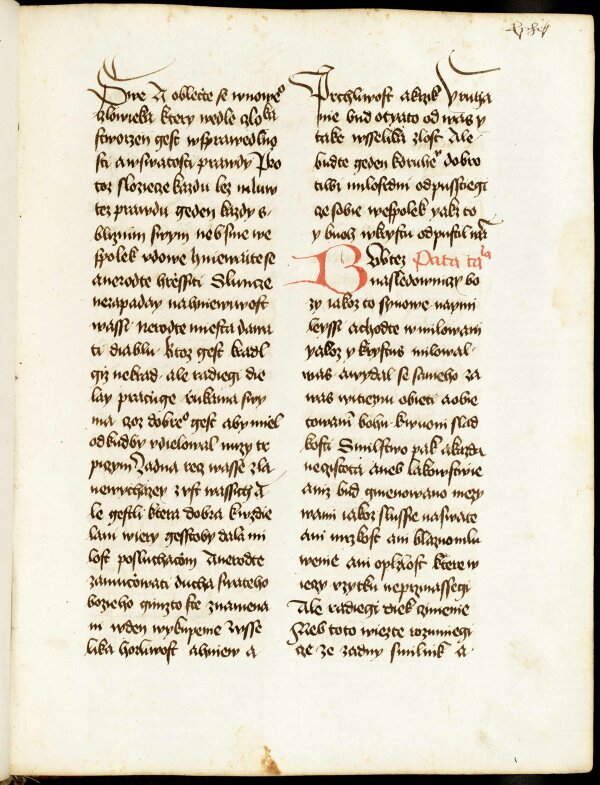 Swe A oblecte se wnoweº
czlowieka ktery wedle czloka
stworzen gest wsprawedlno
sti a wswatosti prawdy Pro
toz sloziece kazdu lez mluw
tez prawdu geden kazdy s
bliznim swym neb sme we
spolek vdowe hniewaite se
a nerodte hressiti Slunce
nezapaday nahniewiwost
wassi nerodte miesta dawa
ti diablu Ktoz gest kradl
giz nekrad ale radiegi die
lay pracuge rukama swy
ma czoz dobreº gest aby miel
odkudby vdielowal nuzy tr
piczym Zadna recz wasse zla
newychazey z vst wassich A
le gestli ktera dobra kwzdie
lani wiery gesstoby dala mi
lost posluchaczom A nerodte
zamucowati ducha swateho
bozieho gimzto ste znamena
ni wden wykupenie wsse
lika horliwost a hniew a
Prchliwost a krzik y ruha
nie bud otyato od was y
take wsselika zlost Ale
budte geden kdruheº dobro
tiwi milosrdni odpusstiegi
cze sobie wespolek yakz to
y buoh wkrystu odpustil na
Budtez Pata ta la
nasledownizy bo
zy iakoz to synowe naymi
leyssi a chodte w milowani
yakoz y krystus milowal
was a wydal se sameho za
nas wuczym obieti a obie
towani bohu kwuoni slad
kosti Smilstwo pak a kazda
neczistota aneb lakomstwie
aniz bud gmenowano mezy
wami iakoz slussie na swate
ani mrzkost ani blaznomlu
wenie ani oplzlost ktere w
iezy vzytku neprinassegi
Ale radiegi diek czinienie
Neb toto wiezte rozumiegi
cze ze zadny smilnik A